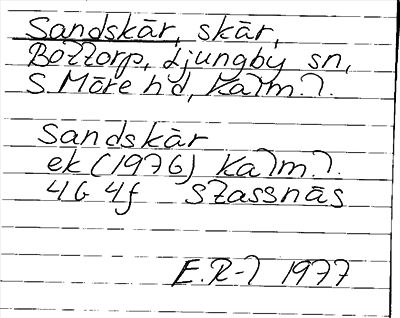 Sandskär, skär,
Bottorp, Ljungby sn,
S. Möre hd, Kalm. l.
Sandskär
ek (1976) Kalm. l.
4G 4f Stassnäs
E.R-l 1977